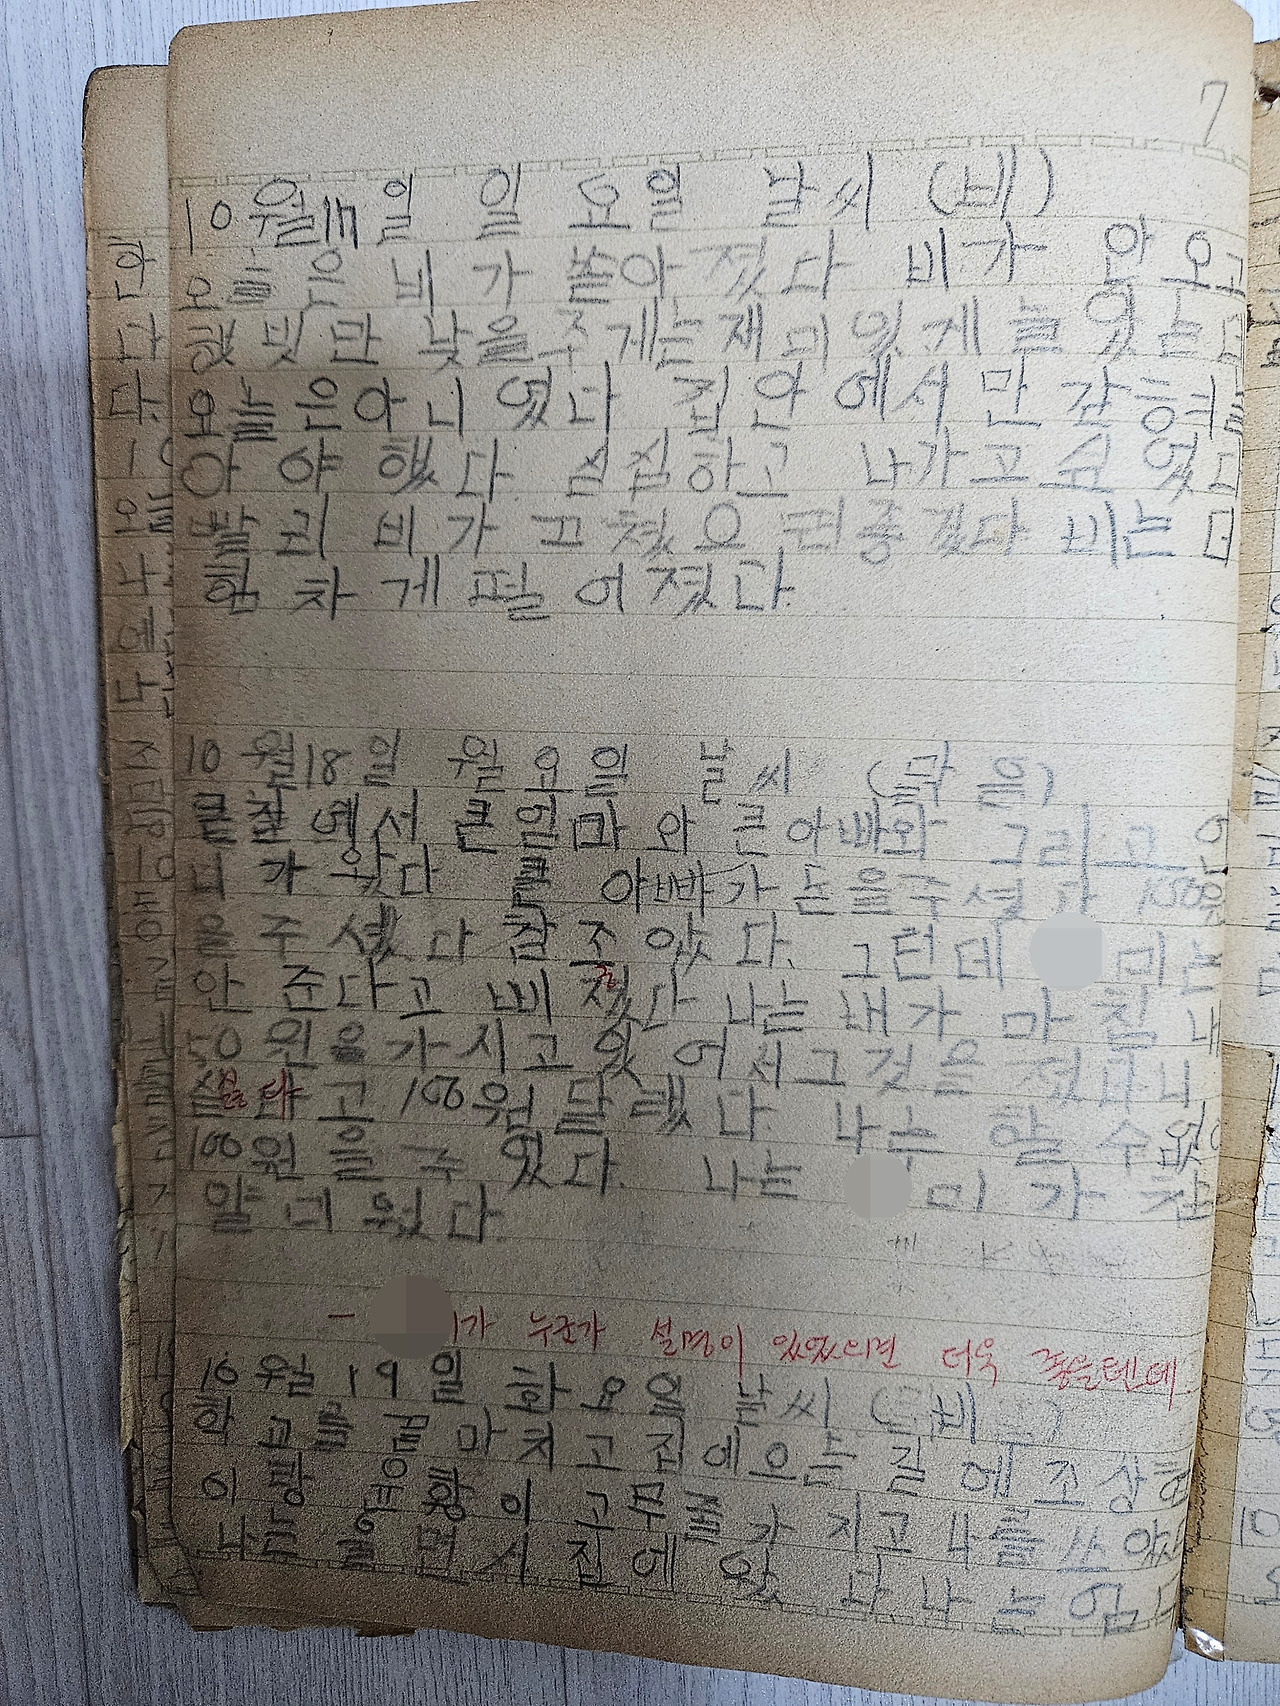 7
10월17일 일요일 날씨 (비)
오늘은 비가 쏟아젔다 비가 안오고
햇빗만 낮을주게는재미있게늘있는데
오늘은아니였다 집안에서만 잔
아야했다 심집하고 나가고싶었다
빨리 비가 끄쳤으 면좋겠다 비는
힘차게떨어졌다.
10월18일 월요일 날씨 (맑음)
큰집에서 큰엄마와 큰아빠와 그리고 언
니가 왔다 큰 아빠가 돈을주셨다 150원
을 주셨다 참 조았다. 그런데 미는
안 준다고 삐젔다 나는 내가 마침 내
50원을 가지고있어서그것을 젔더니
싫다고 100원 달랬다 나는 할 수없이
100원을 주었다. 나는 미가
얄미웠다.
- 가 누군가 설명이 있었더라면 더욱 좋을텐데
10월 19일 화요일 날씨 (비)
학교를 끝마치고 집에오는 길에조상
이랑 이 고무줄가지고 나를 쏘았다
나는 울면서 집에 왔다 나는 엄